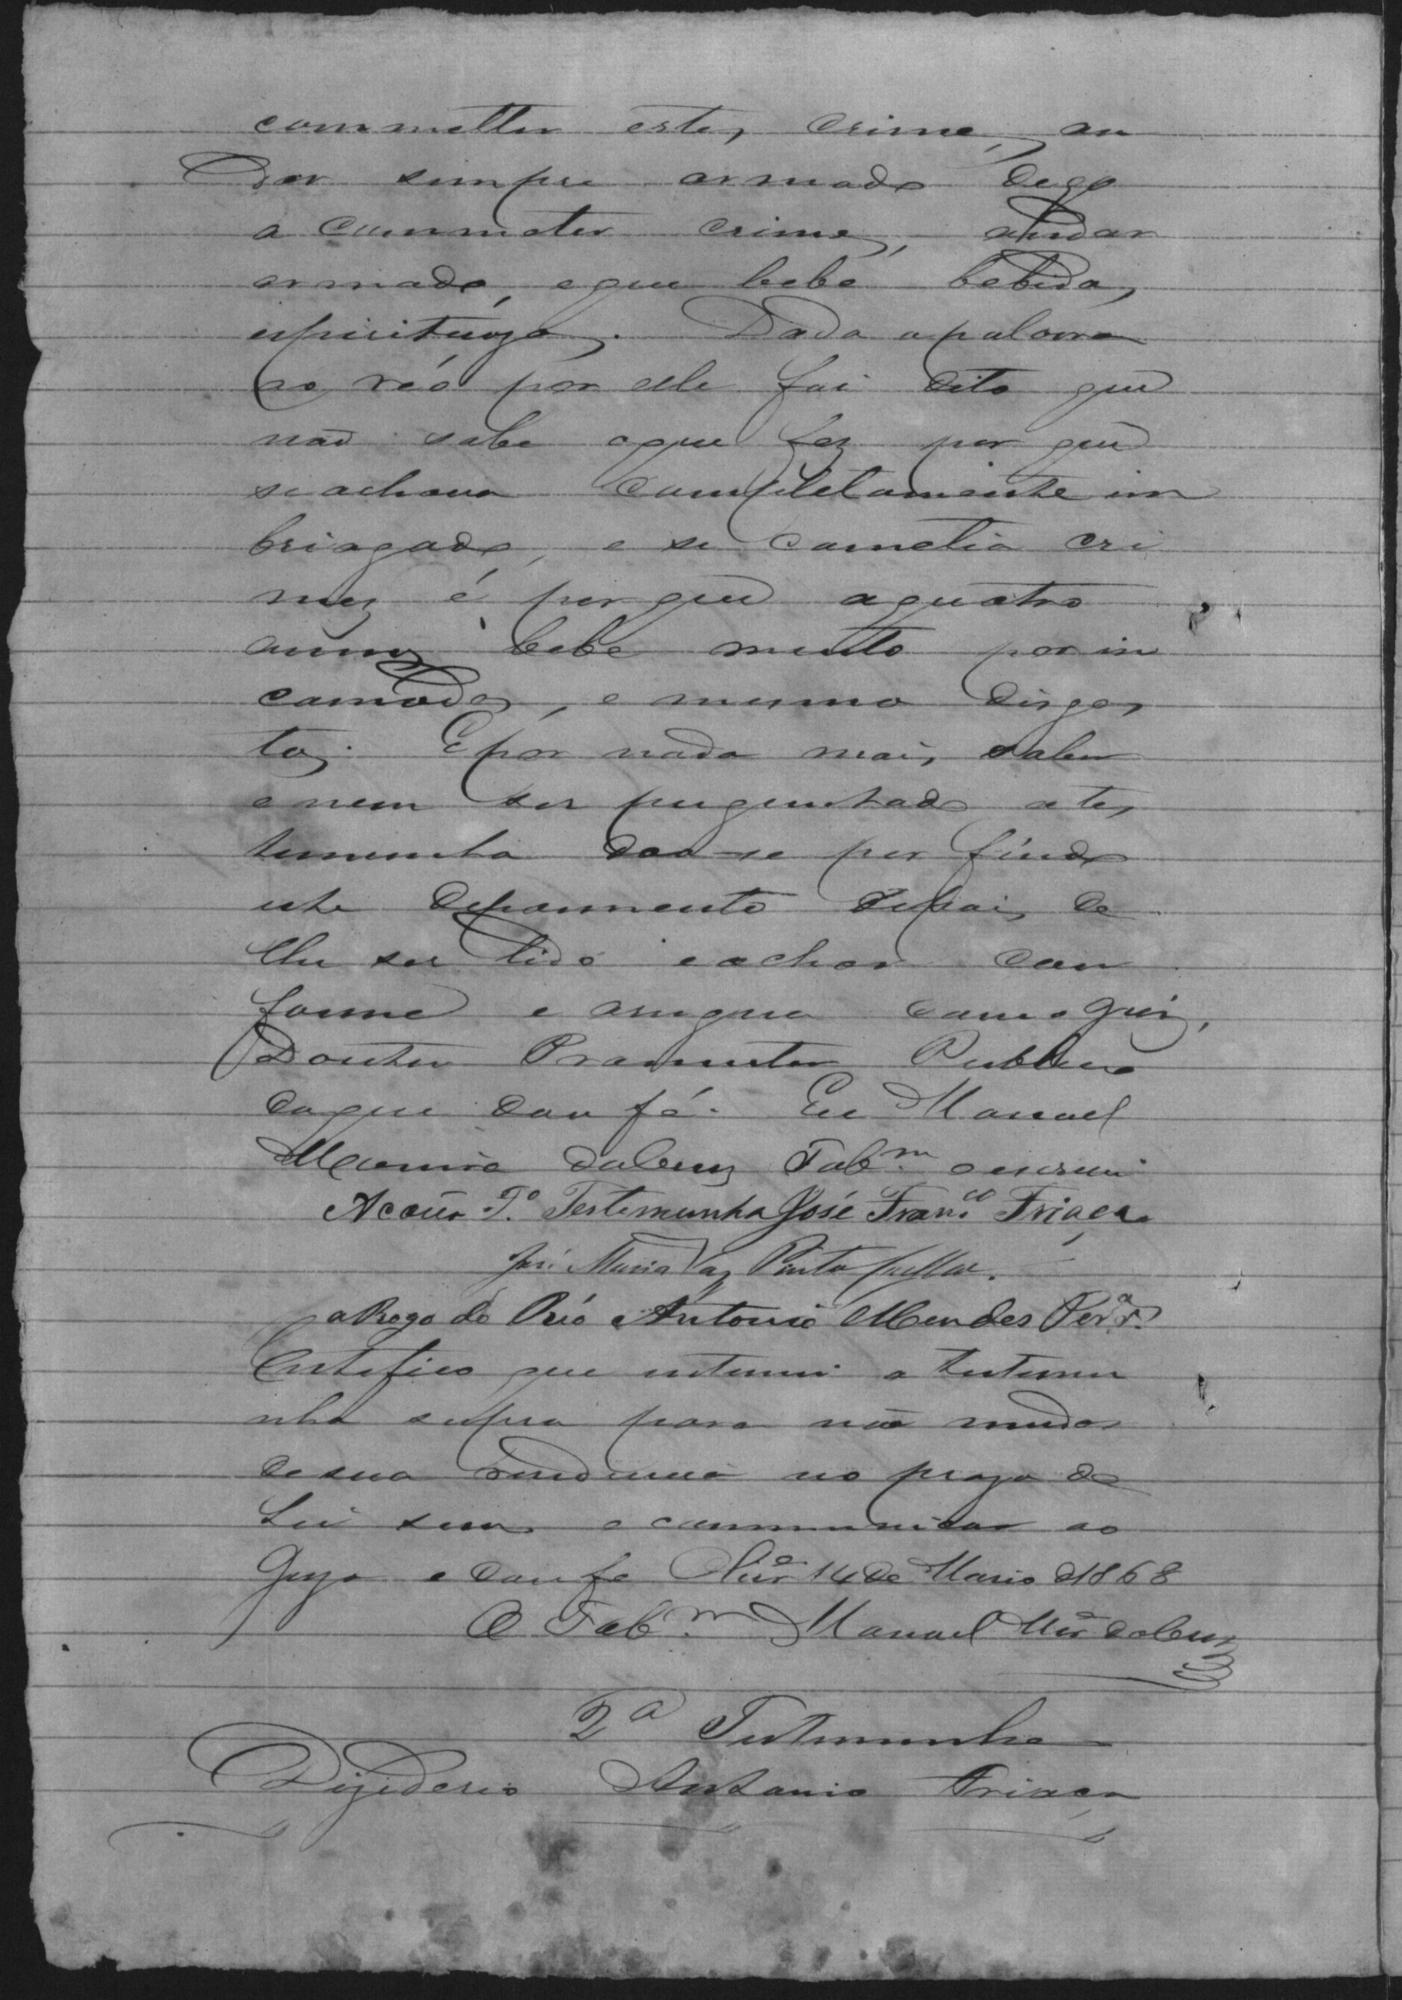 commetter estes crime, an
dar sempre armado digo
a commeter crimes, andar
armado, e que bebe bebidas
espirituozas. Dada a palavra
ao reó por elle foi dito que
não sabe oque fez por que
seachava completamente im
briagado, e se cometia cri
mez é por que a quatro
annos bebe muito por in
comodos, e mesmo disgos
tos. E por nada mais saber
e nem ser perguntado a tes
temunha dou-se por findo
este depoimento depois de
lhe ser lido e achar con
forme e assigna com o Juiz,
Doutor Promutor Publico
do que dou fé. Eu Manoel
Moreira da Cruz Tab.m o escrevi
José Fran.co Friaça
José Maria Vaz Pinto
a Rogo do Réo Antonio Mendes Per.ra
Certefico que intimei a testemu
nha supra para não mudar
de sua residencia no prazo da
Lei sem o communicar ao
Juizo e dou fe 14 de Março d 1868
O Tab.m Manoel Mor.a da Cruz
2a Testemunha
Dizederio Antonio Friaça